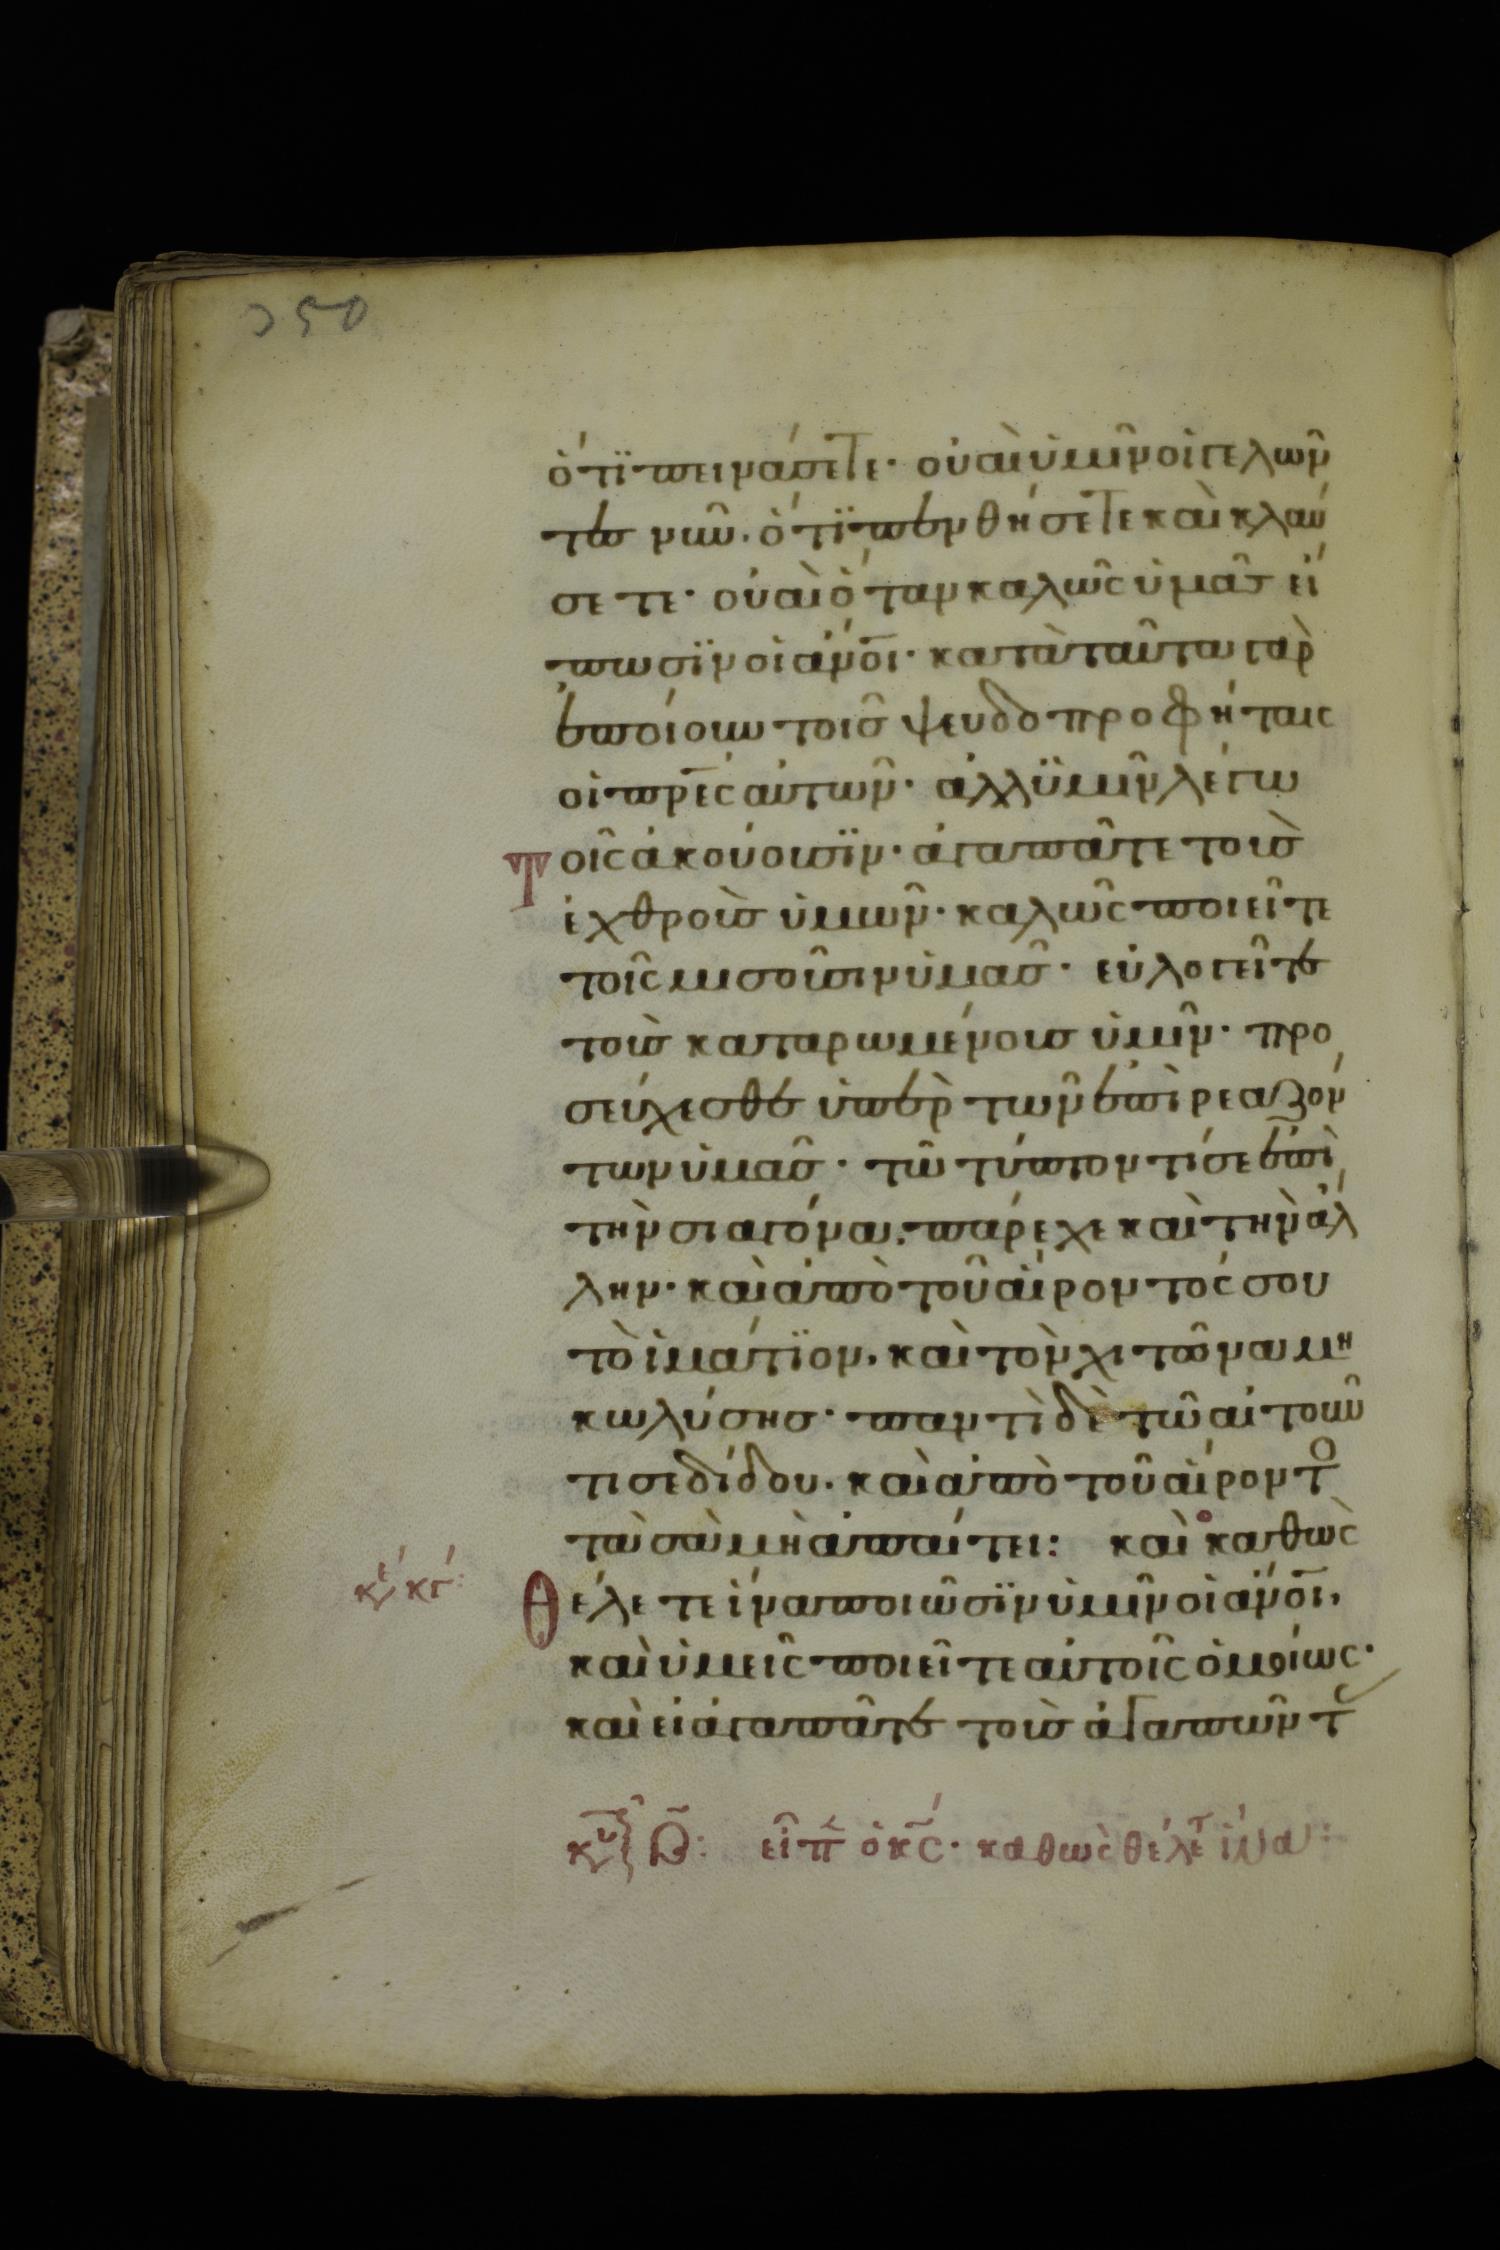 250
ὅτι πεινάσετε· οὐαὶ ὑμῖν οἱ γελῶν
τες νῦν· ὅτι πενθήσετε καὶ κλαύ
σετε· οὐαὶ ὅταν καλῶς ὑμᾶς εἴ
πωσϊν οἱ ἄνοι· κατὰ ταῦτα γὰρ
ἐποίουν τοῖς ψευδοπροφήταις
οἱ πρες αὐτῶν· ἀλλ ϋμῖν λέγω
τοῖς ἀκούουσϊν· ἀγαπᾶτε τοὺς
ἐχθροὺς ὑμῶν· καλῶς ποιεῖτε
τοῖς μισοῦσιν ὑμᾶς· εὐλογεῖτε
τοὺς καταρωμένους ὑμῖν· προ
σεύχεσθε ὑπὲρ τῶν ἐπηρεαζόν
των ὑμᾶς· τῶ τύπτοντί σε ἐπὶ
τὴν σιαγόνα· πάρεχε καὶ τὴν ἄλ
λην· καὶ ἀπὸ τοῦ αἴροντός σου
τὸ ἱμάτϊον, καὶ τὸν χιτῶνα μη
κωλύσης· παντὶ δὲ τῶ αἰτοῦν
τι σε δίδου· καὶ ἀπὸ τοῦ αἴροντο
τὰ σὰ μὴ ἀπαίτει: καὶ καθὼς
θέλετε ἵνα ποιῶσϊν ὑμῖν οἱ ἄνοι,
καὶ ὑμεῖς ποιεῖτε αὐτοῖς ὁμοίως·
καὶ εἰ ἀγαπᾶτε τοὺς ἀγαπῶντ
εἶπ ὁ κς· καθὼς θέλετ ἵνα: